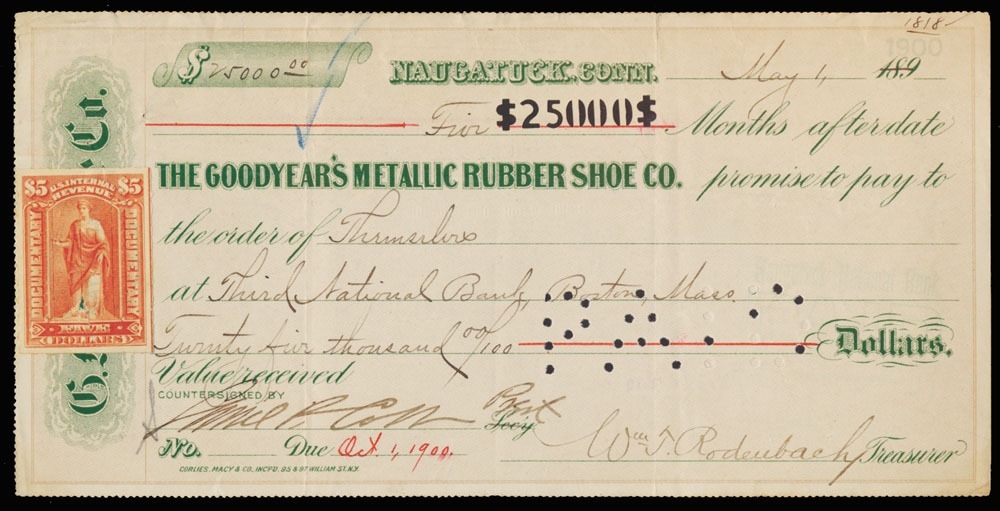 1818
1900
$ 25000 00
NAUGATUCK, CONN. May 1, 189
Five $25000$ Months after date
THE GOODYEAR'S METALLIC RUBBER SHOE CO. promise to pay to
the order of Themselves
at Third National Bank, Boston, Mass.
Twenty five thousand 00/100 Dollars.
Value received
COUNTERSIGNED BY
Prest
Sec'y
Wm T. Rodenbach Treasurer
No. Due Oct. 1, 1900.
CORLIES, MACY & CO. INC'P'D. 95 & 97 WILLIAM ST. N.Y.
$5 U.S. INTERNAL REVENUE $5
DOCUMENTARY
DOCUMENTARY
FIVE
DOLLARS
Co.